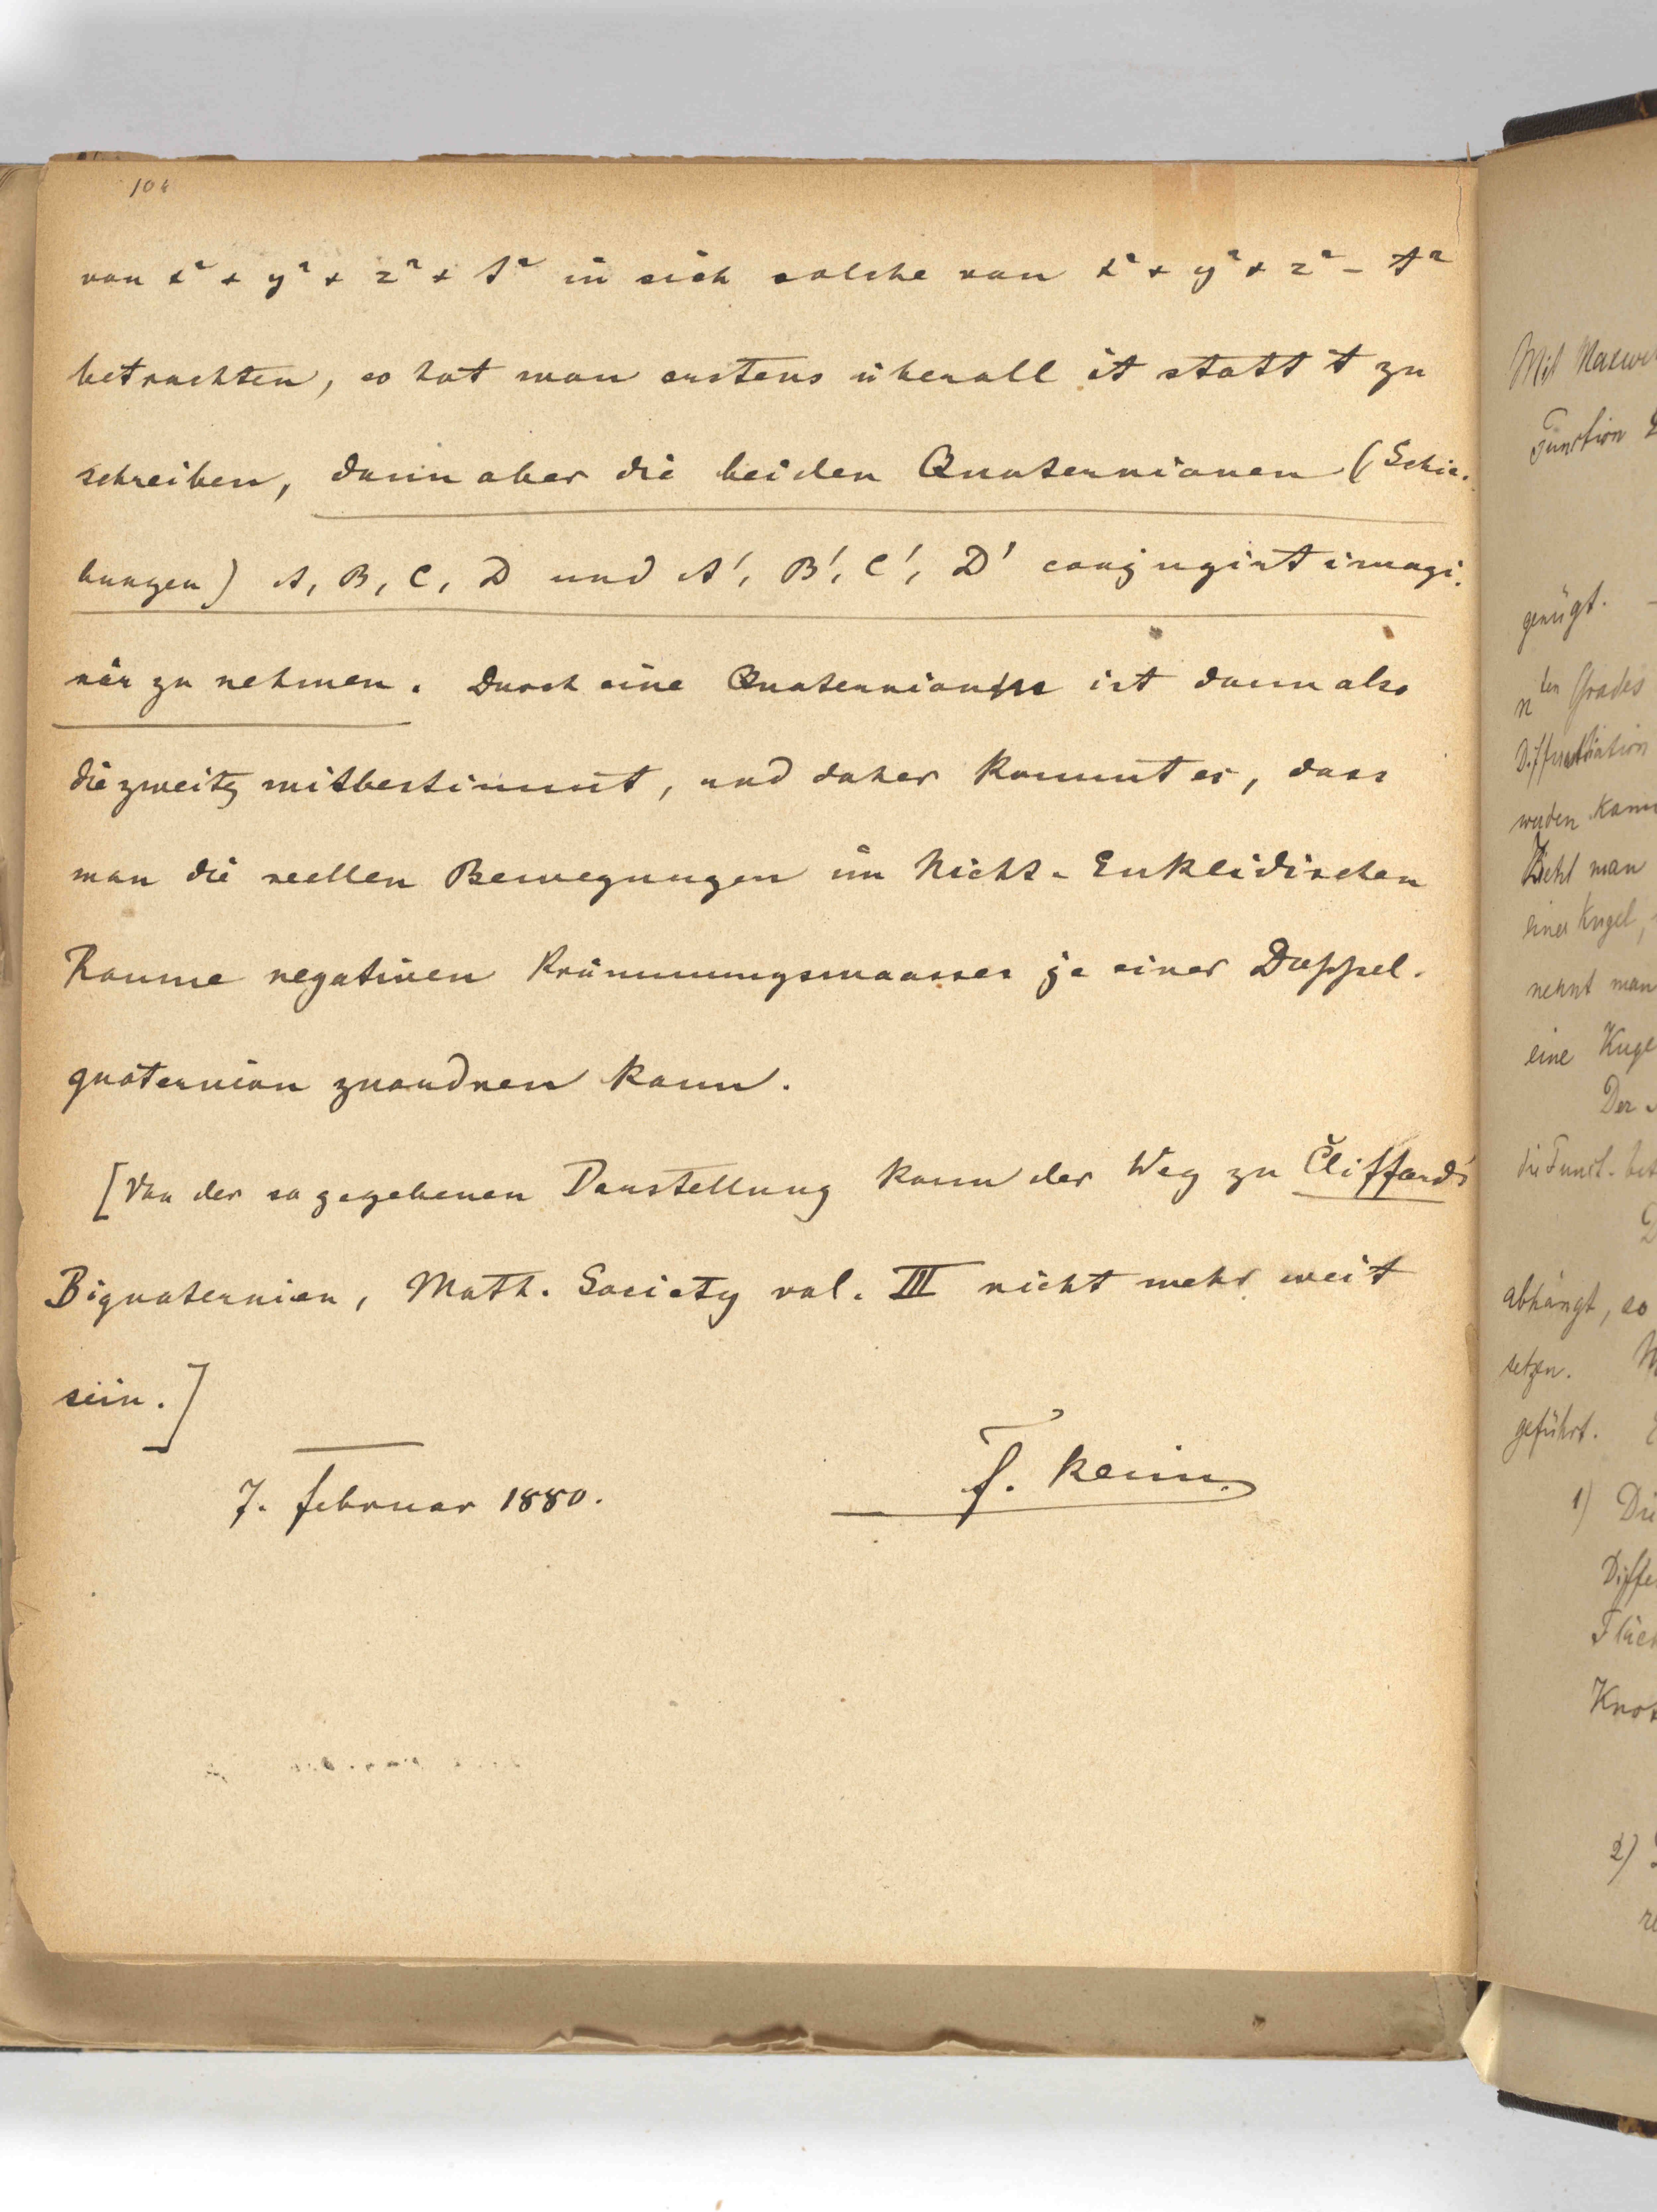 104
von x² + y² + z² + t² in sich solche von x² + y² + z² - t²
betrachten, so hat man erstens überall it statt t zu
schreiben, dann aber die beiden Quaternionen (Schie-
bungen) A, B, C, D und A', B', C', D' conjugirt imagi-
när zu nehmen. Durch eine Quaternion ist dann also
die zweite mitbestimmt, und daher kommt es, dass
man die reellen Bewegungen im Nicht-Euklidischen
Raume negativen Krümmungsmaasses je einer Doppel-
quaternion zuordnen kann.
[Von der so gegebenen Darstellung kann der Weg zu Clifford's
Biquaternien, Math. Society vol. III nicht mehr weit
sein.]
7. Februar 1880.
F. Klein.
Mit
Function
genügt.
nten Grades
werden kann
Zieht man
einer Kugel,
nennt man
eine
Der
die Funct.
abhängt, so
setzen.
geführt.
1) Die
2)